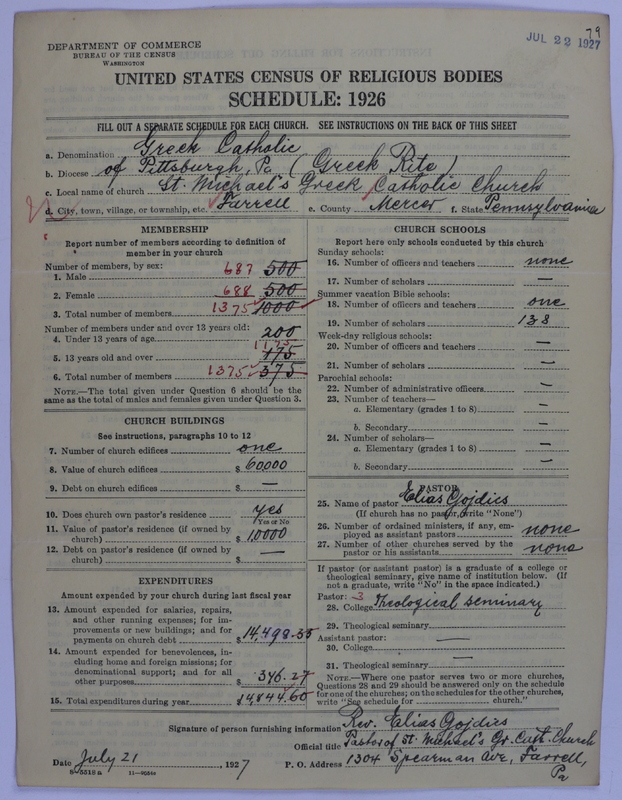 79
JUL 22 1927
DEPARTMENT OF COMMERCE
BUREAU OF THE CENSUS
WASHINGTON
UNITED STATES CENSUS OF RELIGIOUS BODIES
SCHEDULE: 1926
FILL OUT A SEPARATE SCHEDULE FOR EACH CHURCH. SEE INSTRUCTIONS ON THE BACK OF THIS SHEET
a. Denomination Greek Catholic
b. Diocese of Pittsburgh, Pa (Greek Rite)
c. Local name of church St. Michael's Greek Catholic Church
d. City, town, village, or township, etc. Farrell e. County Mercer f. State Pennsylvania
MEMBERSHIP
Report number of members according to definition of
member in your church
Number of members, by sex:
1. Male 687 500
2. Female 688 500
3. Total number of members 1375 1000
Number of members under and over 13 years old:
4. Under 13 years of age 200
1175
5. 13 years old and over 175
6. Total number of members 1375 375
NOTE.—The total given under Question 6 should be the
same as the total of males and females given under Question 3.
CHURCH BUILDINGS
See instructions, paragraphs 10 to 12
7. Number of church edifices one
8. Value of church edifices $ 60000
9. Debt on church edifices $ —
10. Does church own pastor's residence yes
Yes or No
11. Value of pastor's residence (if owned by
church) $ 10000
12. Debt on pastor's residence (if owned by
church) $ —
EXPENDITURES
Amount expended by your church during last fiscal year
13. Amount expended for salaries, repairs,
and other running expenses; for im-
provements or new buildings; and for
payments on church debt $ 14,498.33
14. Amount expended for benevolences, in-
cluding home and foreign missions; for
denominational support; and for all
other purposes $ 346.27
15. Total expenditures during year $ 14,844.60
CHURCH SCHOOLS
Report here only schools conducted by this church
Sunday schools:
16. Number of officers and teachers none
17. Number of scholars —
Summer vacation Bible schools:
18. Number of officers and teachers one
19. Number of scholars 138
Week-day religious schools:
20. Number of officers and teachers —
21. Number of scholars —
Parochial schools:
22. Number of administrative officers —
23. Number of teachers—
a. Elementary (grades 1 to 8) —
b. Secondary —
24. Number of scholars—
a. Elementary (grades 1 to 8) —
b. Secondary —
PASTOR
25. Name of pastor Elias Gojdics
(If church has no pastor, write "None")
26. Number of ordained ministers, if any, em-
ployed as assistant pastors none
27. Number of other churches served by the
pastor or his assistants none
If pastor (or assistant pastor) is a graduate of a college or
theological seminary, give name of institution below. (If
not a graduate, write "No" in the space indicated.)
Pastor: 3
28. College Theological seminary
29. Theological seminary
Assistant pastor: —
30. College
31. Theological seminary —
NOTE.—Where one pastor serves two or more churches,
Questions 28 and 29 should be answered only on the schedule
for one of the churches; on the schedules for the other churches,
write "See schedule for church."
Signature of person furnishing information Rev. Elias Gojdics
Official title Pastor of St. Michael's Gr. Cath. Church
Date July 21, 1927 P. O. Address 1304 Spearman Ave, Farrell,
Pa
8—5518 a 11—9584a